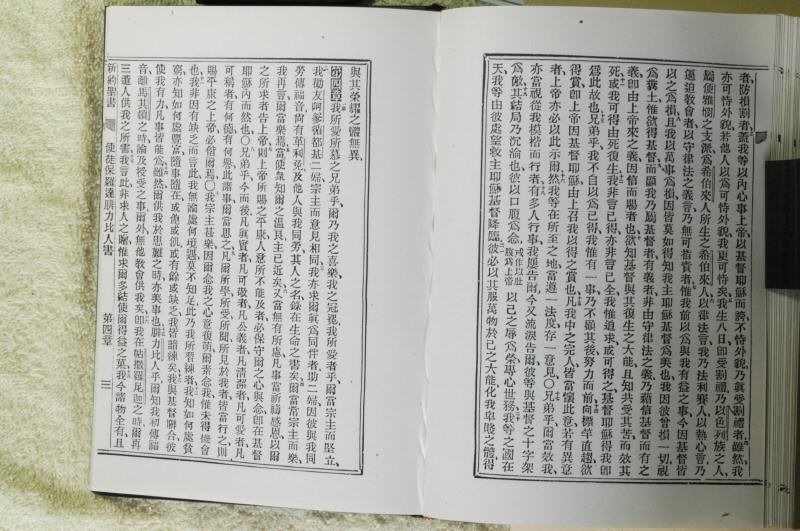 者、防損割者、蓋我等以內心事上帝、以基督耶穌而誇、不恃外貌、乃眞受割禮者、雖然我
亦可恃外貌、若他人以爲可恃外貌、我更可恃矣、我生八日、卽受割禮、乃以色列族之人、
屬便雅憫之支派、爲希伯來人所生之希伯來人、以律法言、我乃法利賽人、以熱心言、乃
逼迫敎會者、以守律法之義言、乃無可指責者、惟我前以爲與我有益之事、今因基督皆
以之爲損、且我以萬事爲損、因皆莫如得知我主耶穌基督爲美也、我因彼曾損一切、視
爲糞土、惟欲得基督、而顯我乃屬基督者、有義者、非由守律法之義、乃藉信基督而有之
義、卽由上帝來之義、因信而賜者也、欲知基督與其復生之大能、且知共受其苦、而效其
死、或我可得由死復生、我非言已得、亦非言已全、我惟追求、或可得之、基督耶穌得我、卽
爲此故也、兄弟乎、我不自以爲已得、我惟有一事、乃不顧其後、努力而前、向標竿直趨、欲
得賞、卽上帝因基督耶穌由上召我以得之賞也、凡我中之完人、皆當懷此意、若有異意
者、上帝亦必以此示爾、然我等在所至之地、當遵一法度、存一意見、〇兄弟乎、爾當效我、
亦當視從我模楷而行者、有多人行事、我屢告爾、今又流淚告爾、彼等與基督之十字架
爲敵、其結局乃沉淪也、彼以口腹爲念、或作以腹爲上帝 以己之辱爲榮、專心世務、我等之國在
天、我等由彼處望救主耶穌基督降臨、彼必以其服萬物於己之大能、化我卑賤之體、得
與其榮耀之體無異、
第四章 我所愛所慕之兄弟乎、爾乃我之喜樂、我之冠冕、我所愛者乎、爾當宗主而堅立、
我勸友阿爹、循都基、二婦宗主而意見相同、我亦求爾眞爲同伴者、助二婦、因彼與我同
勞傳福音、尚有革利免、及他人與我同勞、其人之名錄在生命之書矣、爾當常宗主而樂、
我再言爾當樂焉、當使衆知爾之溫良、主已近矣、當無有所慮、凡事當祈禱感恩、以爾
之所求者告上帝、則上帝所賜之平康、人意所不能及者、必保守爾之心與念、卽在基督
耶穌內而然也、〇兄弟乎、今而後凡眞實者、凡可敬者、凡公義者、凡清潔者、凡可愛者、凡
可稱者、有何德、有何譽、此諸事爾當思之、凡爾所學、所受、所聞、所見於我者、皆當行之、則
賜平康之上帝、必偕爾焉、〇我宗主甚樂、因爾念我之心意復萌、爾素念我、惟未得機會
也、我非因有缺乏之而言此、我無論處何境遇、莫不知足、此乃我所習練者、我知如何處貧
窮、亦知如何處豐富、隨事隨在、或飽、或飢、或有餘、或缺乏、我皆諳練矣、我與基督聯合、彼
使我有力、凡事皆能爲、雖然、爾供我於患難之時、亦美事也、腓力比人乎、爾知我初傳福
音、離馬其頓之時、論及授受之事、爾外無他敎會供我矣、卽我在帖撒羅尼迦之時、爾再
三遣人供我之所需、我言此、非求人之餽、惟求爾多結使爾得益之果、我今諸物全有、且
新約聖書 使徒保羅達腓力比人書 第四章 三